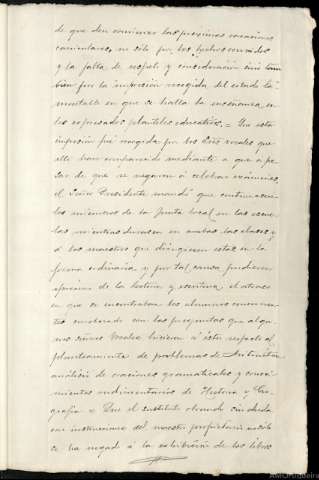 de que den comienzo las proximas vacaciones
caniculares, no sólo por los hechos
y la falta de respeto y consideración sino tam
bien por la impresión recogida del estado la
mentable en que se halla la enseñanza en
los expresados planteles educativos. = Que esta
impresión fué recogida por los Sres vocales que
allí han comparecido mediante a que a pe
sar de que se negaron á celebrar exámenes,
el Señor Presidente mandó que continuasen
los miembros de la Junta local en las escue
las mientras durasen en ambas las clases y
á los maestros que dirigiesen estas en la
forma ordinaria y por tal causa pudieron
apreciar de la lectura y escritura el atraso
en que se encontraban los alumnos
corroborado con las preguntas que algu
nos señores Vocales hicieron á éstos respecto al
planteamiento de problemas de Aritmética
análisis de oraciones gramaticales y conoci
mientos rudimentarios de Historia y Geo
grafía = Que el sustituto obrando sin duda
con instrucciones del maestro propietario no sólo
se ha negado á la exhibición de los libros